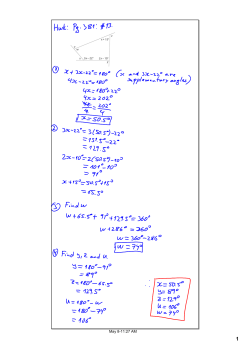 Hwk: Pg. 381: #13
① x + 3x-22° = 180° (x and 3x-22° are supplementary angles)
4x-22° = 180°
4x = 180°+22°
4x = 202°
4x/4 = 202°/4
x = 50.5°
② 3x-22° = 3(50.5)-22°
= 151.5°-22°
= 129.5°
2x-10° = 2(50.5°)-10°
= 101°-10°
= 91°
x+15° = 50.5°+15°
= 65.5°
③ Find w
w + 65.5° + 91° + 129.5° = 360°
w + 286° = 360°
w = 360°-286°
w = 74°
④ Find y, z and u
y = 180°-91°
= 89°
z = 180°-65.5°
= 129.5°
u = 180°-w
= 180°-74°
= 106°
x = 50.5°
y = 89°
z = 129°
u = 106°
w = 74°
May 8-11:37 AM
1